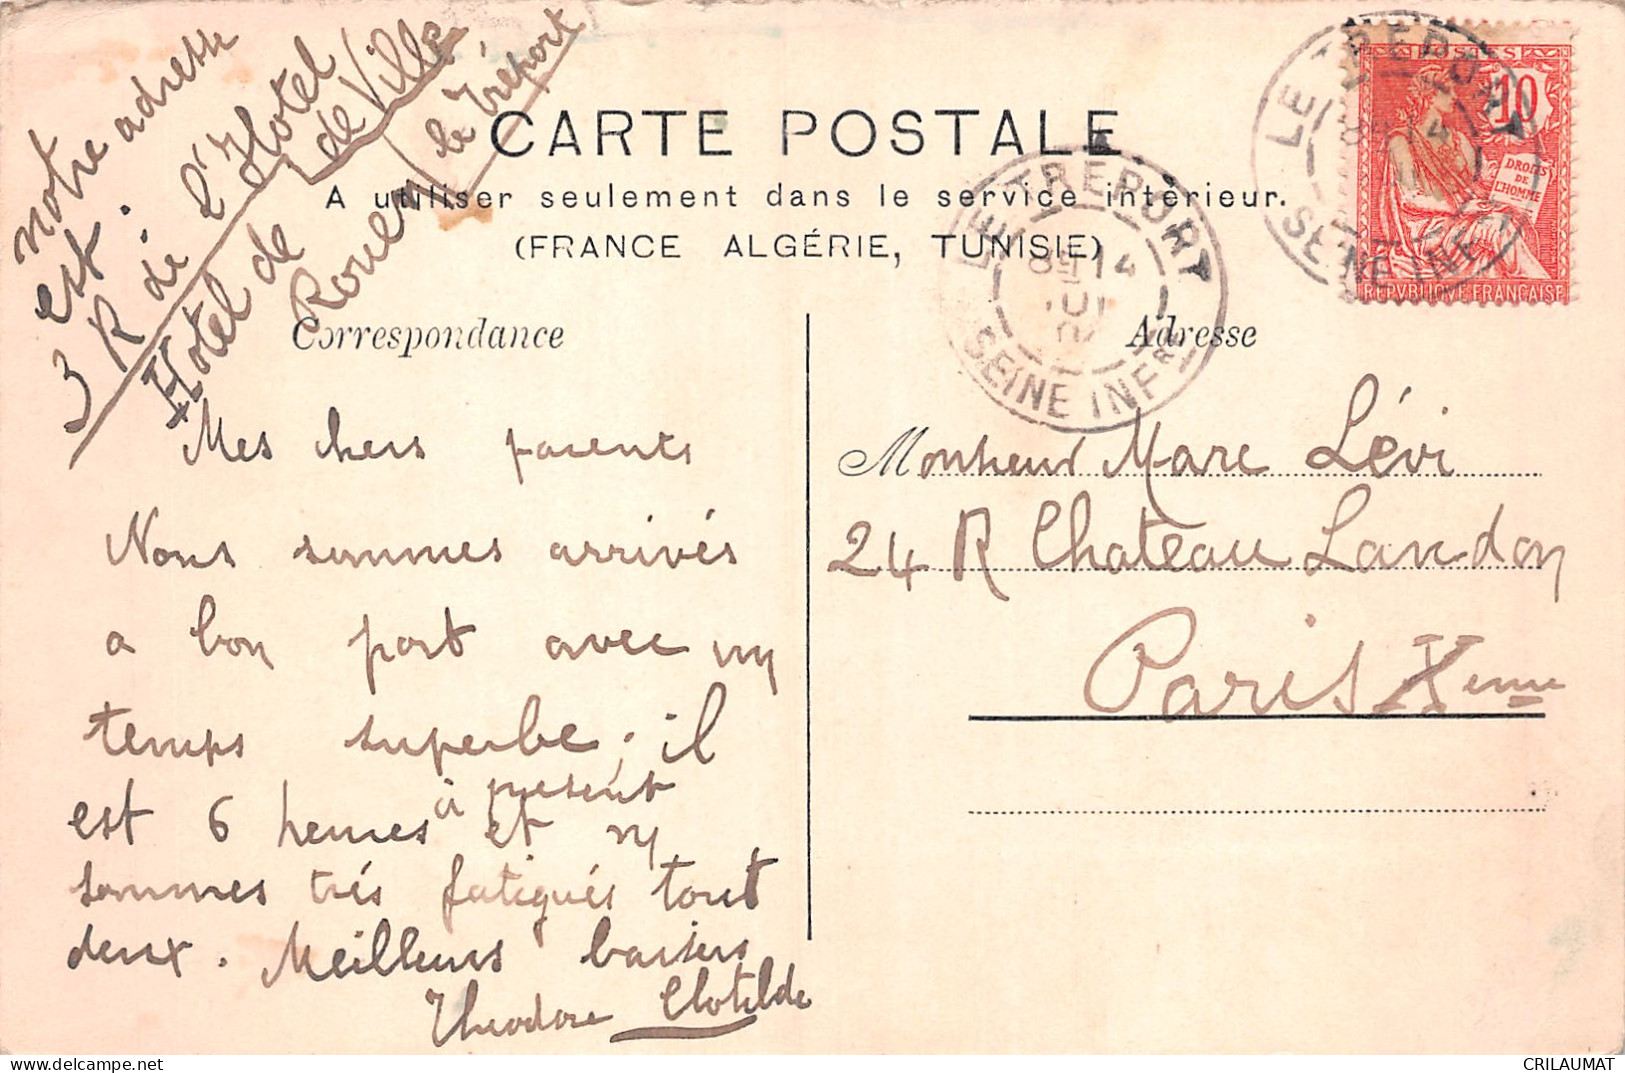 notre adresse
est.
3 R de l'Hotel
de Ville
Hotel de
Rouen
Le Tréport
CARTE POSTALE
A utiliser seulement dans le service intérieur.
(FRANCE ALGÉRIE, TUNISIE)
LE TREPORT
8H 14
SEINE INFRE
LE TREPORT
SEINE INF
POSTES
10
DROITS
DE
L'HOMME
REPUBLIQUE FRANCAISE
Correspondance
Mes chers parents
Nous sommes arrivés
a bon port avec un
temps superbe; il
est 6 heures à présent et ns
sommes très fatigués tout
deux. Meilleurs baisers
Theodore Clotilde
Adresse
Monsieur Marc Lévi
24 R Chateau Landon
Paris Xeme
CRILAUMAT